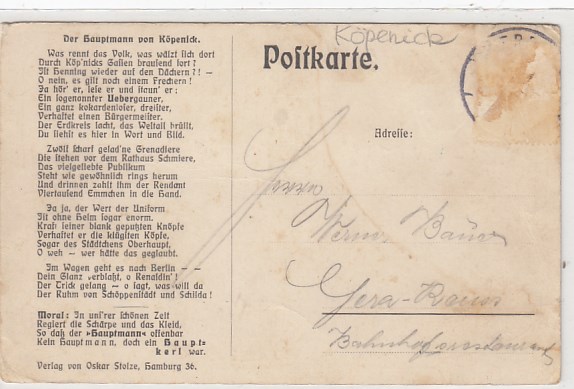 Der Hauptmann von Köpenick.
Was rennt das Volk, was wälzt sich dort
Durch Köp'nicks Gassen brausend fort?
Ist Henning wieder auf den Dächern?! –
O nein, es gilt noch einem Frechern!
Ja hör' er, lese er und staun' er:
Ein sogenannter Uebergauner,
Ein ganz kokardenloser, dreister,
Verhaftet einen Bürgermeister.
Der Erdkreis lacht, das Weltall brüllt,
Du siehst es hier in Wort und Bild.
Zwölf scharf gelad'ne Grenadiere
Die stehen vor dem Rathaus Schmiere,
Das vielgeliebte Publikum
Steht wie gewöhnlich rings herum
Und drinnen zahlt ihm der Rendant
Viertausend Emmchen in die Hand.
Ja ja, der Wert der Uniform
Ist ohne Helm sogar enorm.
Kraft seiner blank geputzten Knöpfe
Verhaftet er die klügsten Köpfe,
Sogar des Städtchens Oberhaupt,
O weh – wer hätte das geglaubt.
Im Wagen geht es nach Berlin – –
Dein Glanz verblaßt, o Renaldin!
Der Trick gelang – o sagt, was will da
Der Ruhm von Schöppenstädt und Schilda!
Moral: In uns'rer schönen Zeit
Regiert die Schärpe und das Kleid,
So daß der »Hauptmann« offenbar
Kein Hauptmann, doch ein Haupt-
kerl war.
Verlag von Oskar Stolze, Hamburg 36.
Köpenick
Postkarte.
Adresse:
Herrn
Gera-Reuss